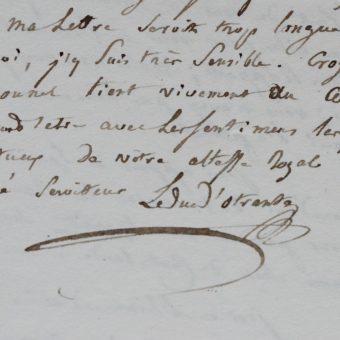 ma Lettre seroit trop longue
oi, j'y suis très sensible. Croy
ounel tient vivement au
ond letre avec les sentimens les
tueux de votre altesse Royal
é serviteur Le duc D'otrante